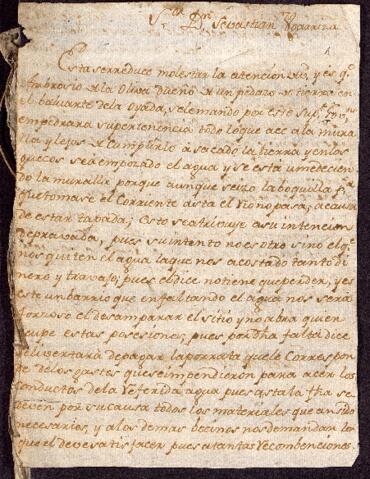 Sr. Dn. Sevastian
Esta se rreduce molestar la atencion de Vd. y es q.
Ambrosio de la Oliva dueño de un pedazo de tierra en
el baluarte de la Oyada, se le mando por este Sup. Gov.
empedrara su pertenencia todo lo que ace a la mura
lla y lejos de cumplirlo a sacado la tierra y en los
guecos se a empozado el agua y se esta umedecien
do la muralla porque aunque se izo la boquilla pa.
que tomase el Corriente asta el Rio no pasa, a causa
de estar tapada; Esto se atribuye a su intencion
depravada, pues su intento no es otro sino el q.
nos quiten el agua la que nos a costado tanto di
nero y travajo; pues el dice no tiene que perder, y es
este un barrio que en faltando el agua nos sera
forsoso el desamparar el sitio y no abra quien
ocupe estas posesiones, pues por dha falta dice
se livertara de pagar la porrata que le Correspon
de de los gastos que se impendieron para acer los
conductos de la Referida agua pues asta la fha se
deven por su causa todos los materiales que an sido
necesarios, y a los demas becinos nos demandan lo
que el deve satisfacer pues a tantas Recombenciones